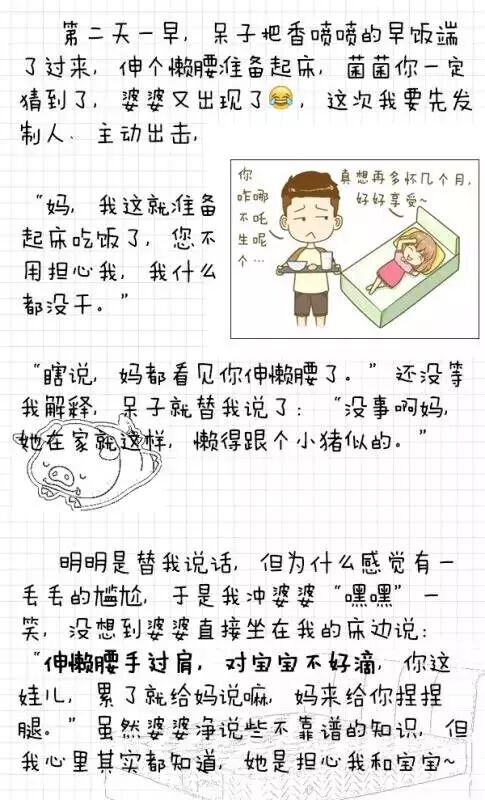 第二天一早，呆子把香喷喷的早饭端
了过来，伸个懒腰准备起床，菌菌你一定
猜到了，婆婆又出现了😂，这次我要先发
制人、主动出击，
“妈，我这就准备
起床吃饭了，您不
用担心我，我什么
都没干。”
你
咋哪
不吒
生呢
个…
真想再多怀几个月，
好好享受~
“瞎说，妈都看见你伸懒腰了。”还没等
我解释，呆子就替我说了：“没事啊妈，
她在家就这样，懒得跟个小猪似的。”
明明是替我说话，但为什么感觉有一
丢丢的尴尬，于是我冲婆婆“嘿嘿”一
笑，没想到婆婆直接坐在我的床边说：
“伸懒腰手过肩，对宝宝不好滴，你这
娃儿，累了就给妈说嘛，妈来给你捏捏
腿。”虽然婆婆净说些不靠谱的知识，但
我心里其实都知道，她是担心我和宝宝~